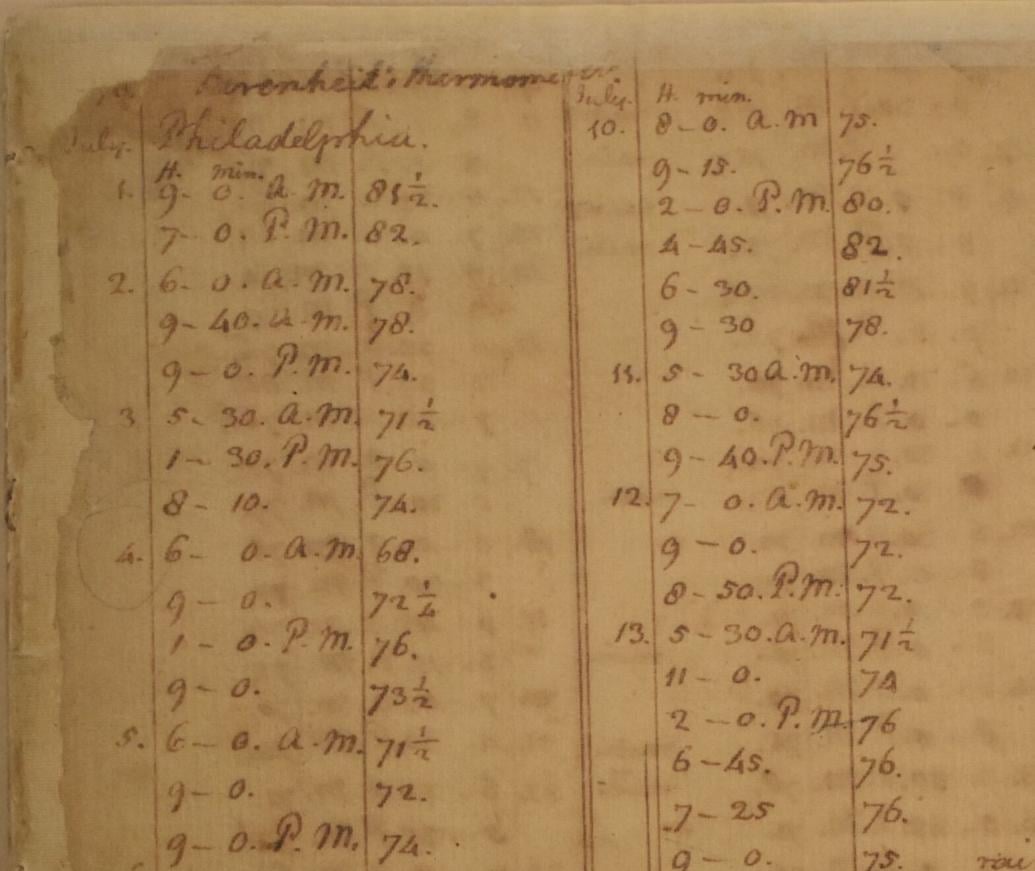 Farenheit's thermometer.
July. Philadelphia.
H. min.
1. 9- 0. a. m. 81½.
7- 0. P. M. 82.
2. 6- 0. a. m. 78.
9- 40. a. m. 78.
9- 0. P. m. 74.
3 5- 30. a. m. 71½
1- 30. P. m. 76.
8- 10. 74.
4. 6- 0. a. m. 68.
9- 0. 72¼
1- 0. P. m. 76.
9- 0. 73½
5. 6- 0. a. m. 71½
9- 0. 72.
9- 0. P. m. 74.
July. H. min.
10. 8- 0. a. m 75.
9- 15. 76½
2- 0. P. m. 80.
4- 45. 82.
6- 30. 81½
9- 30 78.
11. 5- 30 a. m. 74.
8- 0. 76½
9- 40. P. m. 75.
12. 7- 0. a. m. 72.
9- 0. 72.
8- 50. P. m. 72.
13. 5- 30. a. m. 71½
11- 0. 74
2- 0. P. m. 76
6- 45. 76.
7- 25 76.
9- 0. 75.